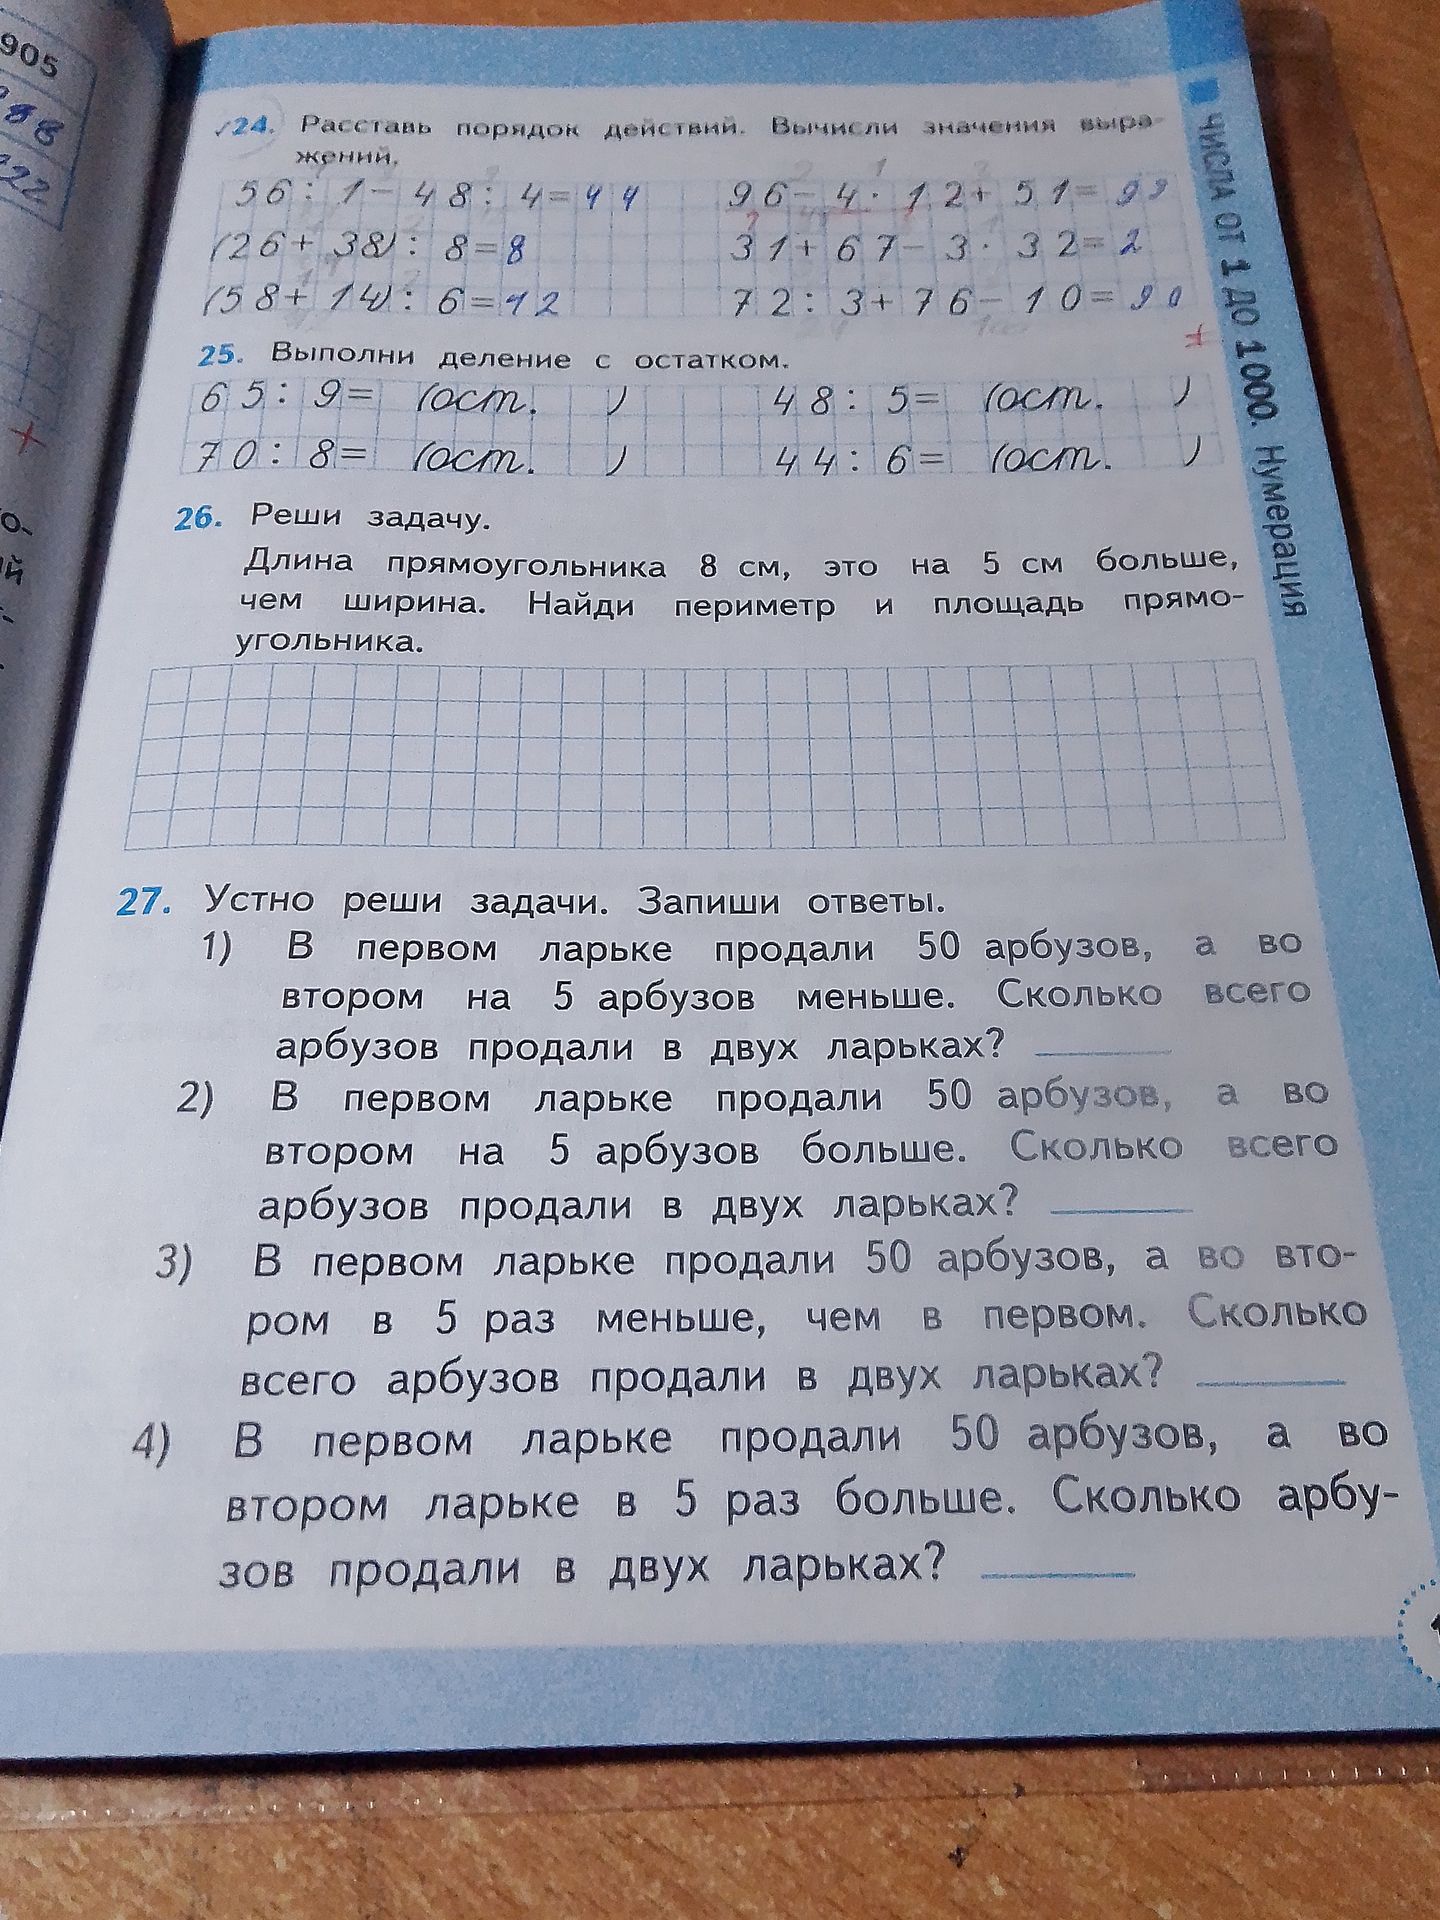 905
24. Расставь порядок действий. Вычисли значения выра-
жений.
56 : 1 - 48 : 4 = 44
96 - 4 · 12 + 51 = 99
(26 + 38) : 8 = 8
31 + 67 - 3 · 32 = 2
(58 + 14) : 6 = 12
72 : 3 + 76 - 10 = 90
25. Выполни деление с остатком.
65 : 9 = (ост. )
48 : 5 = (ост. )
70 : 8 = (ост. )
44 : 6 = (ост. )
26. Реши задачу.
Длина прямоугольника 8 см, это на 5 см больше,
чем ширина. Найди периметр и площадь прямо-
угольника.
27. Устно реши задачи. Запиши ответы.
1) В первом ларьке продали 50 арбузов, а во
втором на 5 арбузов меньше. Сколько всего
арбузов продали в двух ларьках?
2) В первом ларьке продали 50 арбузов, а во
втором на 5 арбузов больше. Сколько всего
арбузов продали в двух ларьках?
3) В первом ларьке продали 50 арбузов, а во вто-
ром в 5 раз меньше, чем в первом. Сколько
всего арбузов продали в двух ларьках?
4) В первом ларьке продали 50 арбузов, а во
втором ларьке в 5 раз больше. Сколько арбу-
зов продали в двух ларьках?
ЧИСЛА ОТ 1 ДО 1000. Нумерация